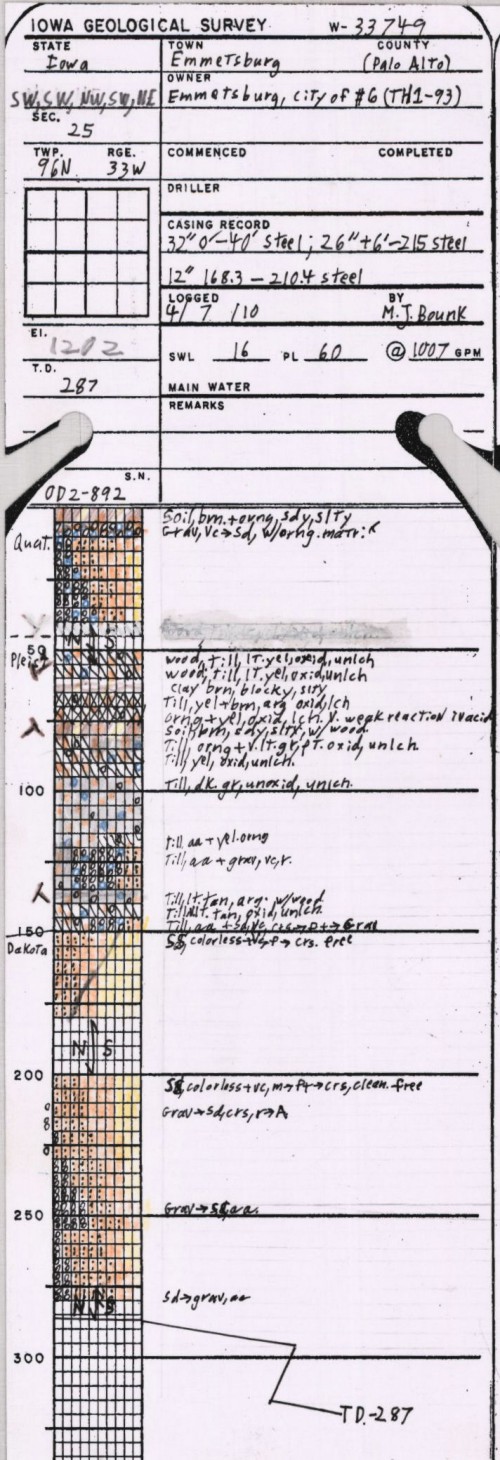 IOWA GEOLOGICAL SURVEY W-33749
STATE TOWN COUNTY
Iowa Emmetsburg (Palo Alto)
OWNER
SW, SW, NW, SW, NE Emmetsburg, city of #6 (TH1-93)
SEC.
25
TWP. RGE. COMMENCED COMPLETED
96N 33W
DRILLER
CASING RECORD
32" 0'-40' steel; 26" +6'-215 steel
12" 168.3 - 210.4 steel
LOGGED BY
4/ 7 /10 M.J. Bounk
El. 1202
SWL 16 PL 60 @ 1007 GPM
T.D.
287 MAIN WATER
REMARKS
S.N.
OD2-892
Soil, brn.+orng, sdy, slty
Grav, vc→sd, w/orng. matrix
Quat.
50
Pleist
wood, till, lt. yel, oxid, unlch
wood, till, lt. yel, oxid, unlch
clay brn, blocky, slty
Till, yel+brn, arg oxid, lch
orng+yel, oxid, lch. v. weak reaction in acid
Soil, brn, sdy, slty, w/ wood.
Till, orng+v.lt.gr, pt. oxid, unlch.
Till, yel, oxid, unlch.
100
Till, dk. gr, unoxid, unlch.
Till aa + yel. orng
Till, aa + grav, vc, r.
Till, lt. tan, arg. w/wood
Till, lt. tan, oxid, unlch.
Till, aa + sd, vc, crs→f+→Grav
150
Dakota
SS, colorless+vc, f→crs. free
N S
200
SS, colorless+vc, m→f+→crs, clean. free
Grav→sd, crs, r→A
250
Grav→sd, aa.
Sd→grav, aa
N S
300
TD.-287